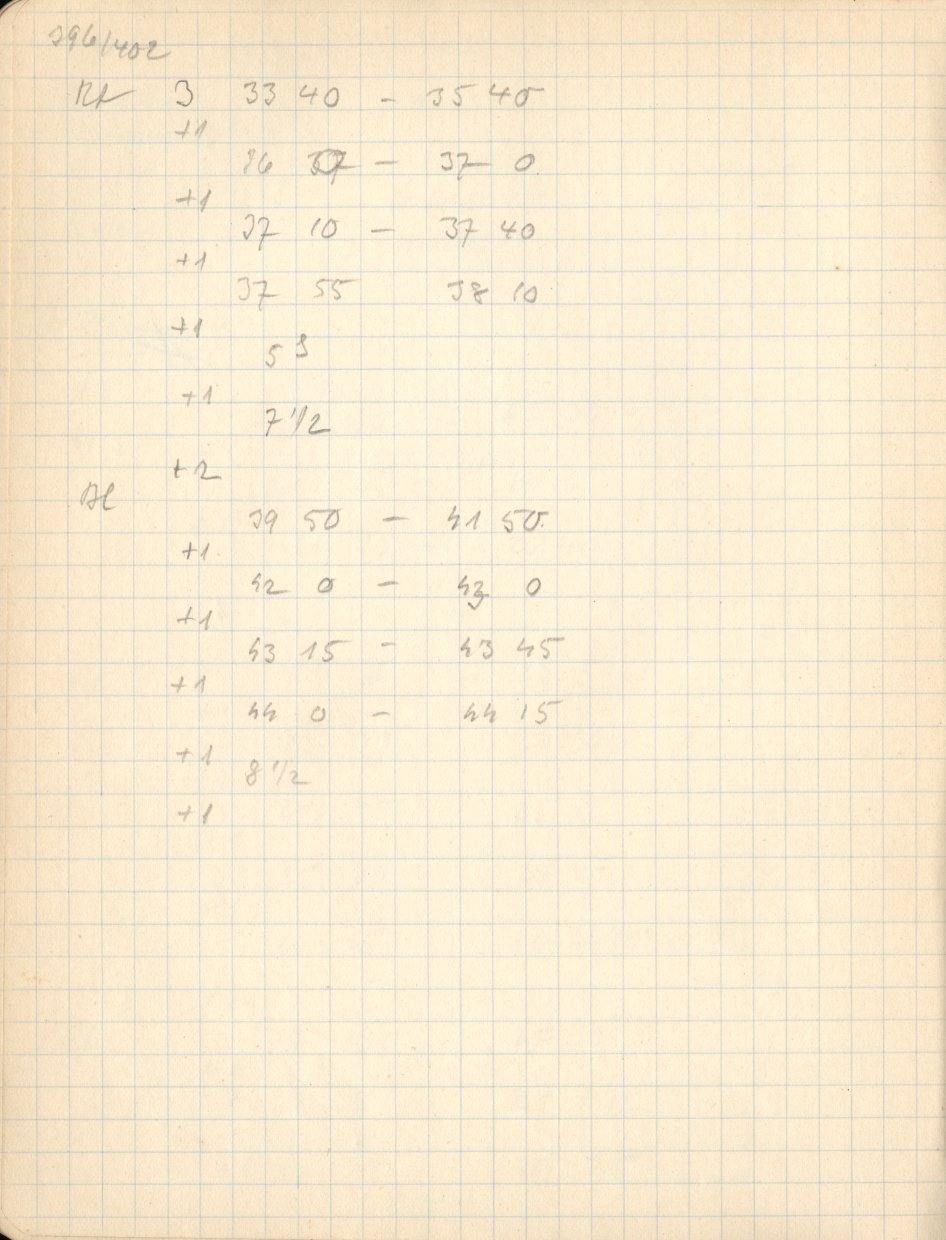 396/402
3 33 40 – 35 40
+1
36 – 37 0
+1
37 10 – 37 40
+1
37 55 38 10
+1
5
+1
7 1/2
+2
39 50 – 41 50
+1
42 0 – 43 0
+1
43 15 – 43 45
+1
44 0 – 44 15
+1
8 1/2
+1